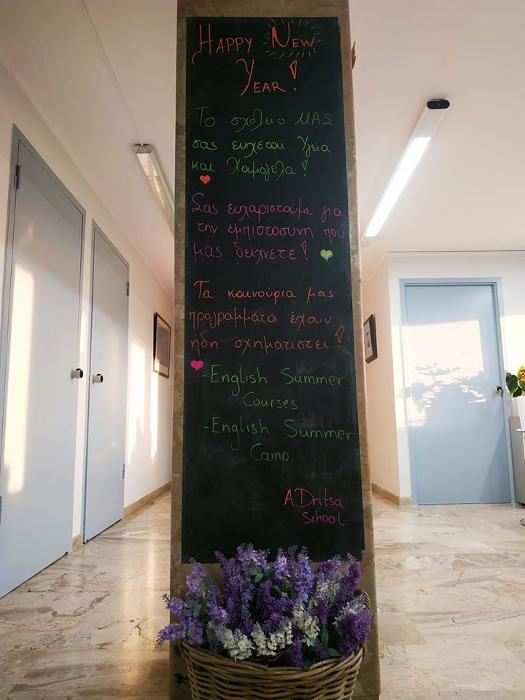 HAPPY NEW
YEAR!
Το σχολειο ΜΑΣ
σας ευχεται Υγεια
και Χαμογελα!
Σας ευχαριστουμε για
την εμπιστοσυνη που
μας δειχνετε!
Τα καινουρια μας
προγραμματα εχουν
ηδη σχηματιστει!
-English Summer
Courses
-English Summer
Camp.
A.Dritsa
School